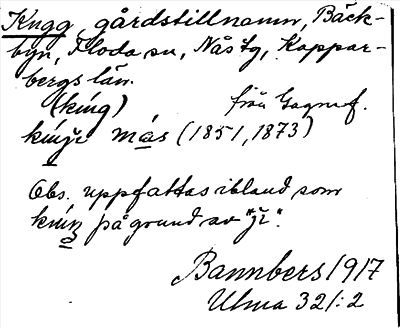 Kugg gårdstillnamn, Bäck-
byn, Floda sn, Nås tg, Koppar-
bergs län.
(king) från Gagnef.
más (1851, 1873)
Obs. uppfattas ibland som
på grund av
Bannbers 1917
Ulma 321:2